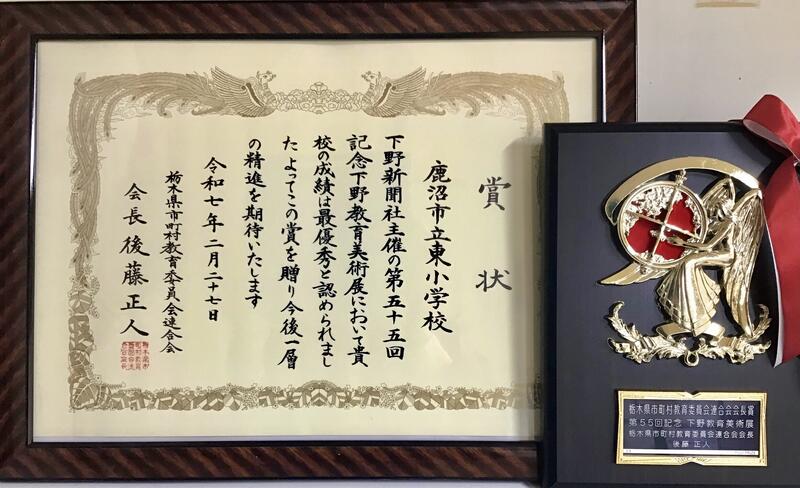 賞状
鹿沼市立東小学校
下野新聞社主催の第五十五回
記念下野教育美術展において貴
校の成績は最優秀と認められまし
たよってこの賞を贈り今後一層
の精進を期待いたします
令和七年二月二十七日
栃木県市町村教育委員会連合会
会長後藤正人
栃木県市町村教育委員会連合会会長賞
第55回記念 下野教育美術展
栃木県市町村教育委員会連合会会長
後藤 正人